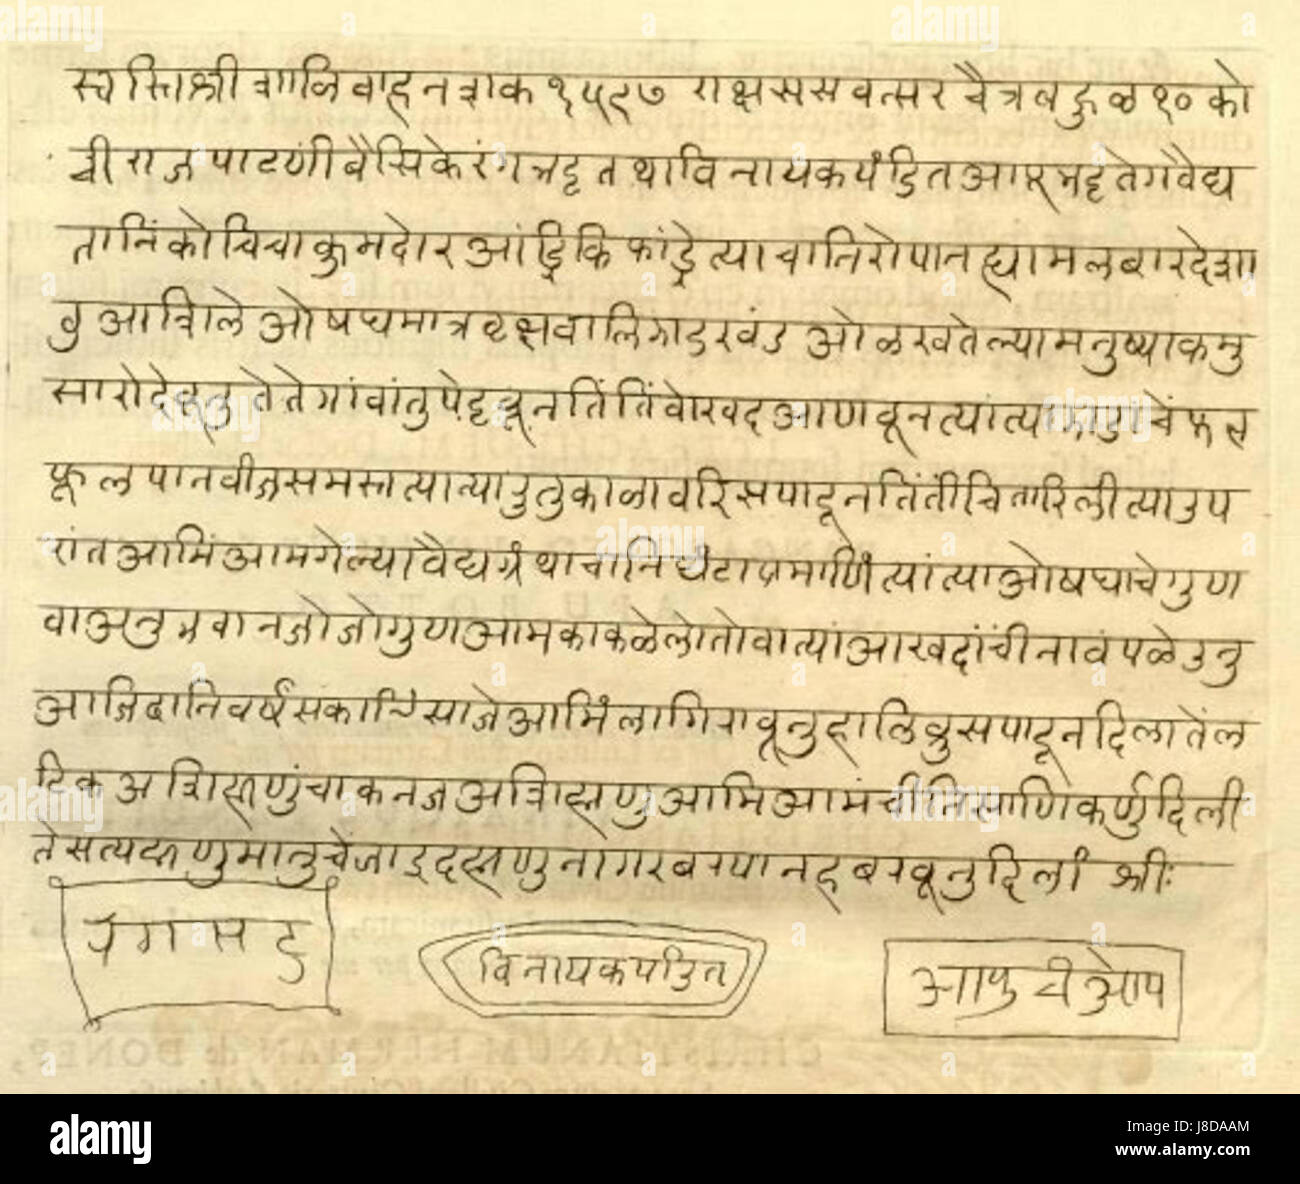 स्वस्ति श्री शालिवाहन शाक १५९७ राक्षस सवत्सर चैत्र बहुळ १० को
ची राज पाटणी वैसिके रंग भट्ट तथा विनायक पंडित आपु भट्ट ते ग वैद्य
तानिं कोचिचा कुमदोर आंड्रि कि फांड्रे त्याचा निरोपान ह्या मलबार देशा
वु आशिले ओषध मात्र वृक्ष वालि झाड खंड ओळखतेल्या मनुष्याक मु
सारो देवूनु ते ते गांवांतु पेट्टवून तिं तिं वोखद आणवून त्यां त्या झाडाचें फल
फूल पान बीज समस्त त्या त्या उतु काळा वरि सपादून तिं तीं चितारिली त्या उप
रांत आमिं आमगेल्या वैद्य ग्रंथाचा निघंटा प्रमाणिं त्यां त्या ओषधाचे गुण
वा अनुभवान जो जो गुण आमका कळेलो तो वा त्यां आखदांचीं नावं पळेउनु
आजि दोनि वर्षं सकाळिं सांजे आमिं लागि रावूनु ह्यालिवुस पादून दिला तें लं
टिक अशि ह्मणुंचाक नज अशि ह्मणु आमि आमंची निसाणि कर्णु दिली
ते सत्य ह्मणु मानुचें जाइद ह्मणु नागर बऱपान ह बऱवूनु दिलां श्रीः
रंग भट्ट
विनायक पंडित
आपु
J8DAAM
alamy
Image ID: J8DAAM
www.alamy.com